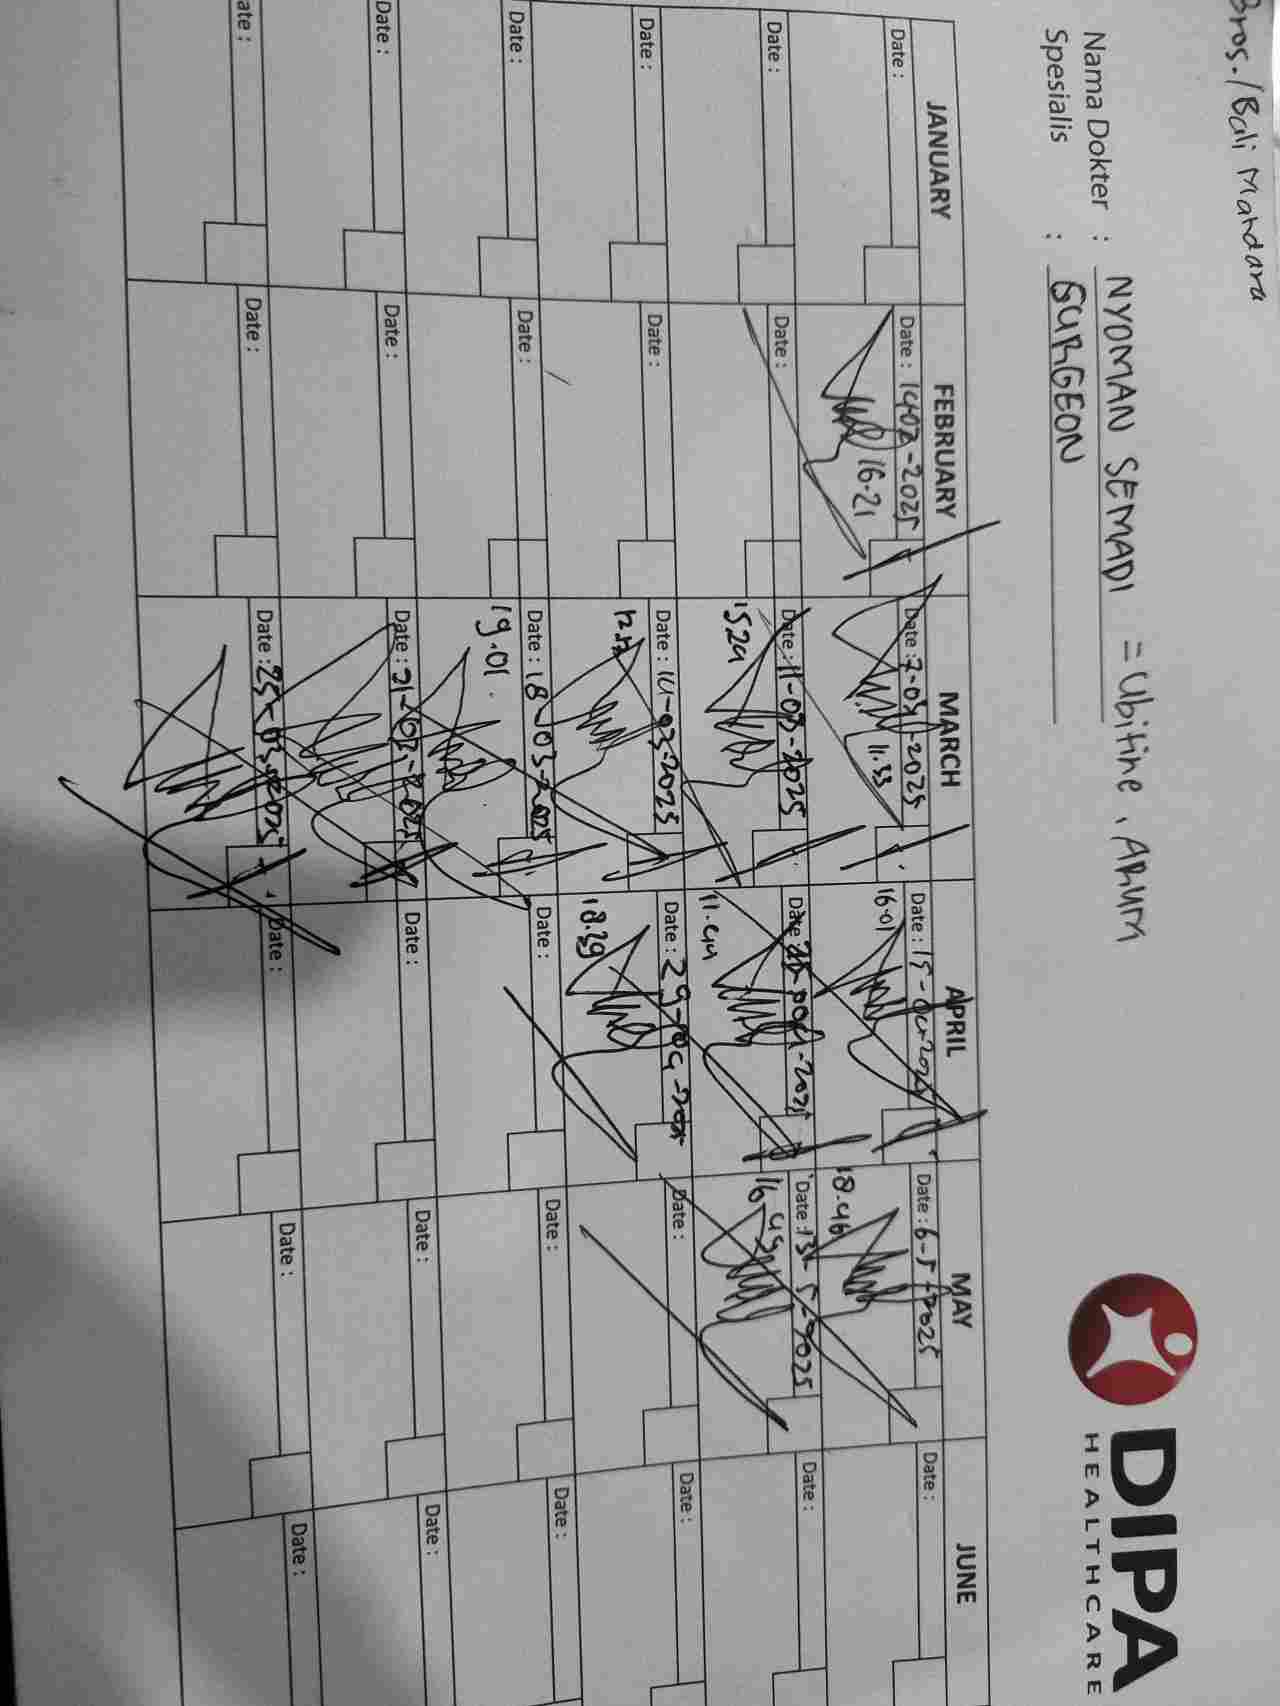 Bros./Bali Mandara
DIPA
HEALTHCARE
Nama Dokter : NYOMAN SEMADI = Ubitine, Arum
Spesialis : SURGEON
JANUARY FEBRUARY MARCH APRIL MAY JUNE
Date : Date : 14-02-2025 Date : 7-03-2025 Date : 15-04-2025 Date : 6-5-2025 Date :
16.21 11.33 16.01 18.46
Date : Date : Date : 11-03-2025 Date Date : 13-5-2025 Date :
1524 11.44 16.49
Date : Date : Date : 14-03-2025 Date : 29-04-202 Date : Date :
18.39
Date : Date : Date : 18-03-2025 Date : Date : Date :
19.01
Date : Date : Date : 21-03-2025 Date : Date : Date :
ate : Date : Date : 25-03-2025 Date : Date : Date :